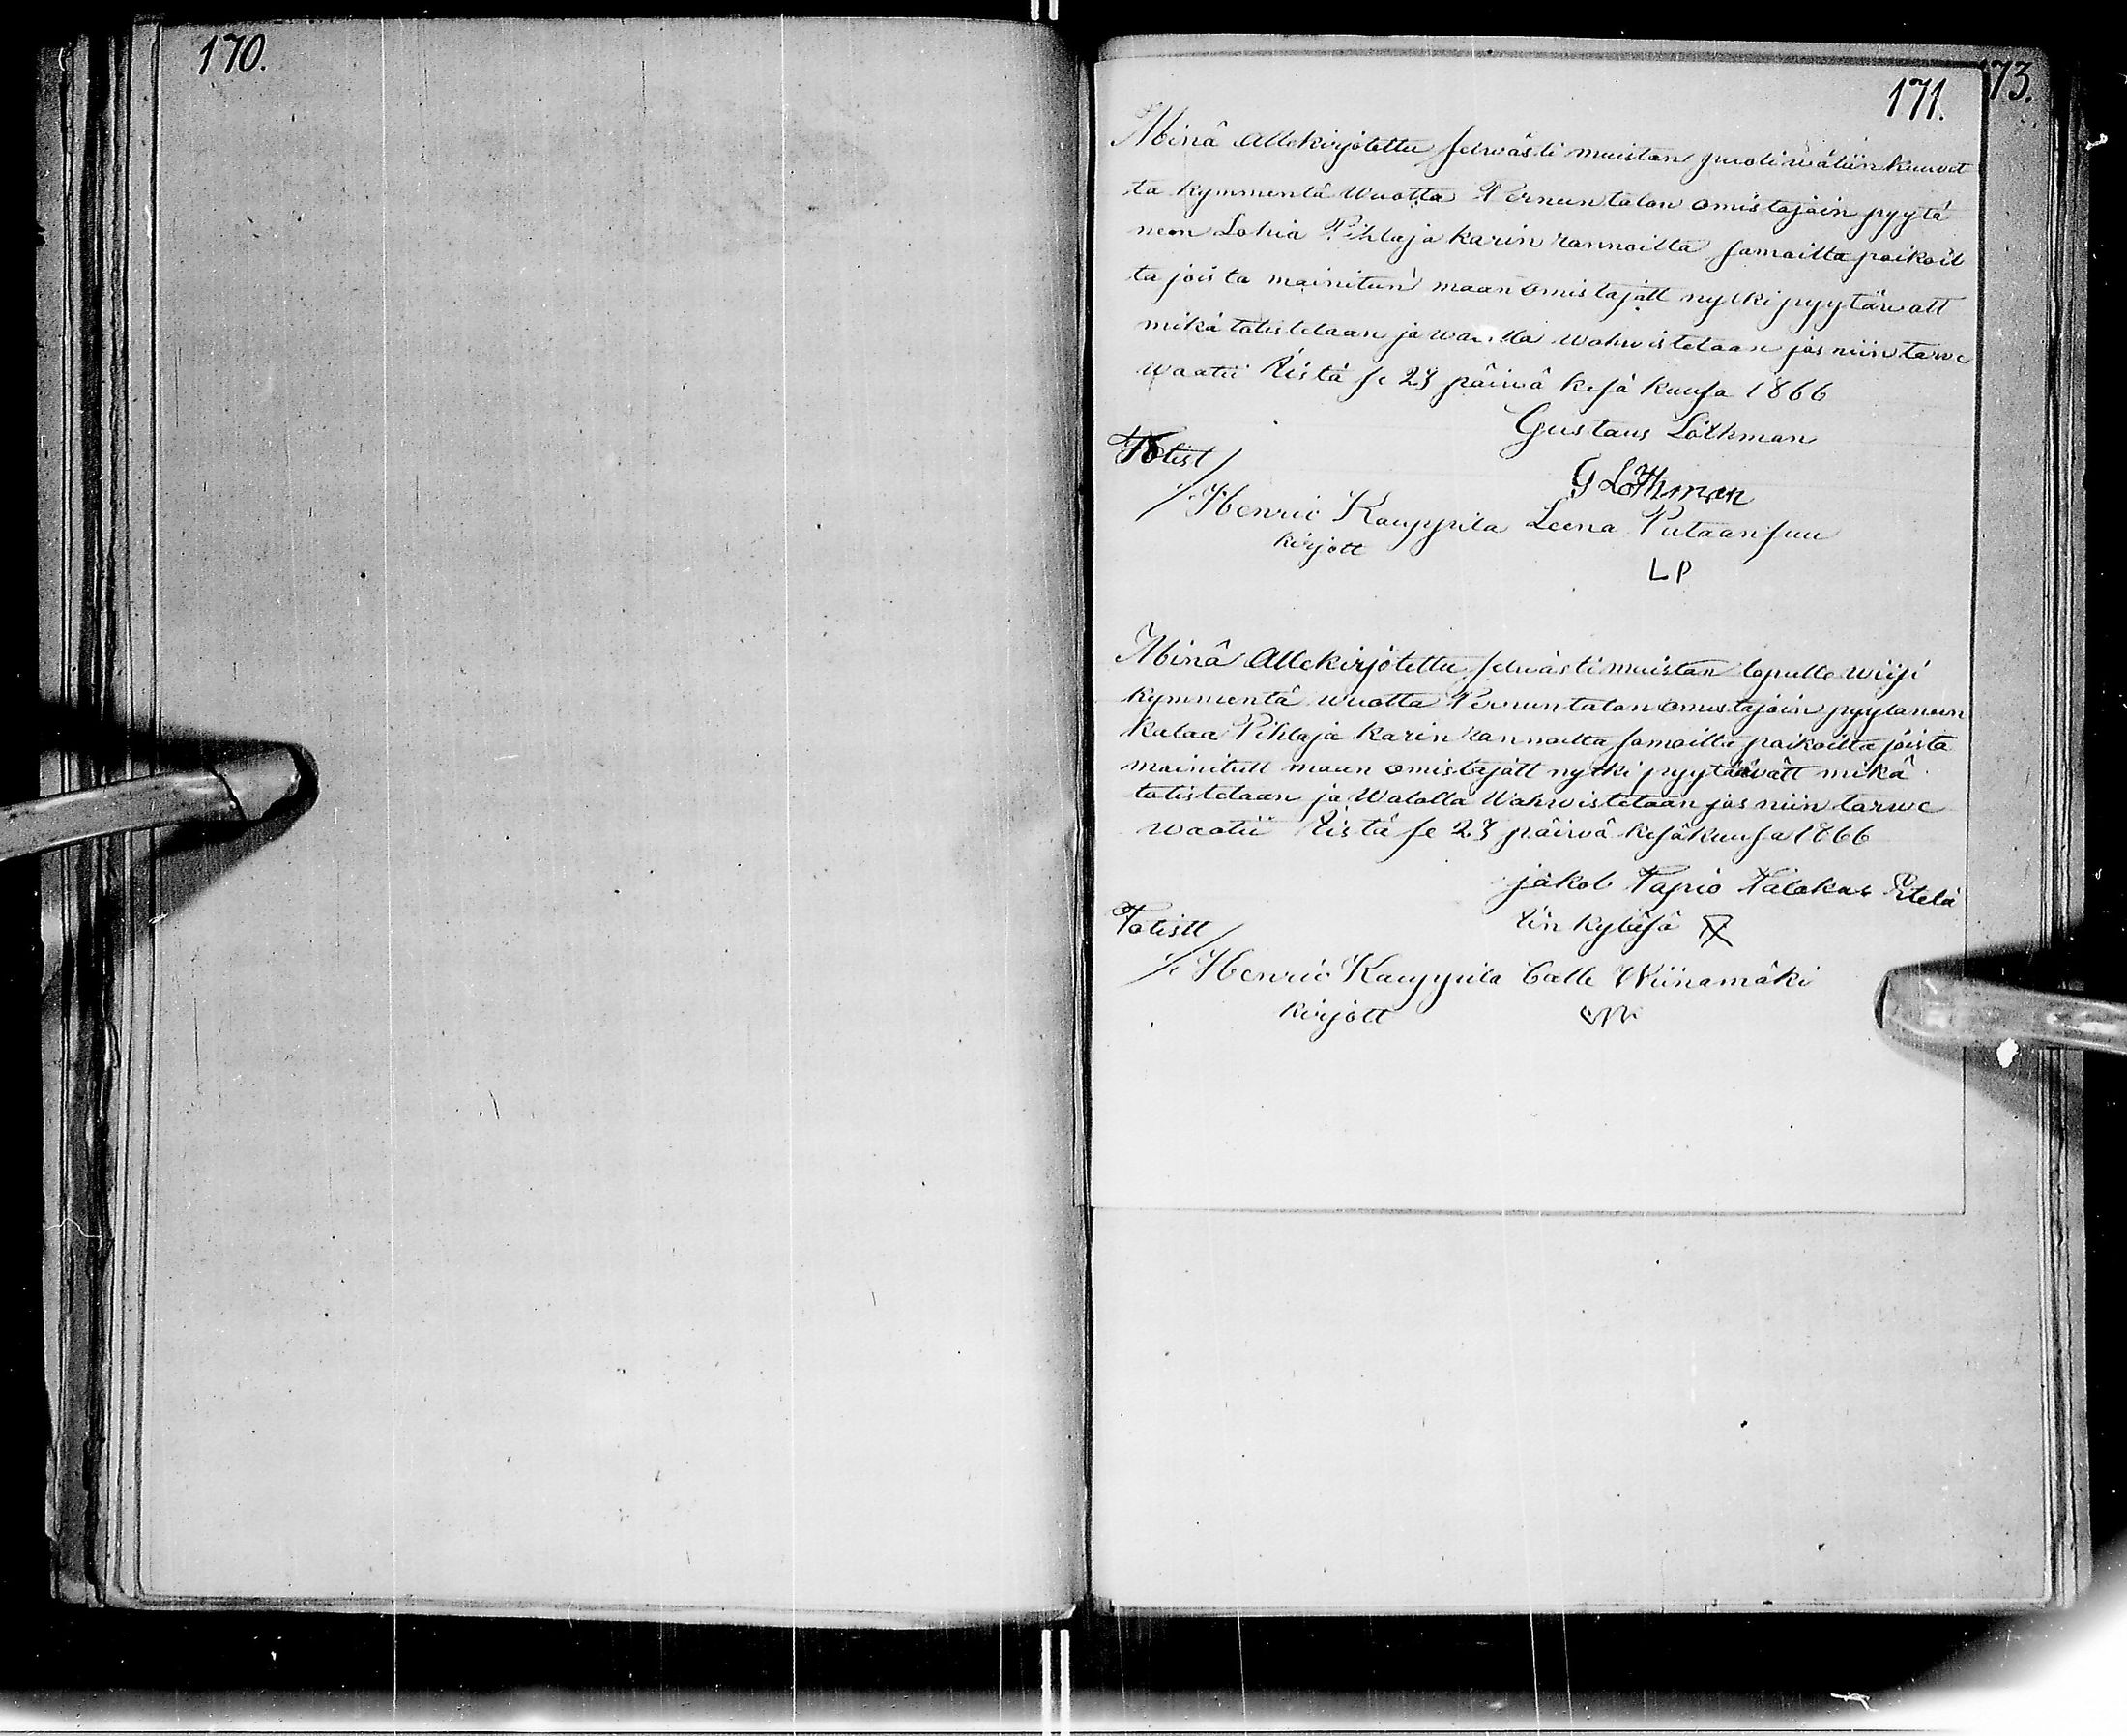 170.
171.
173.
Minä Allekirjotettu selwästi muistan puoliwäliin kuuut
ta kymmentä wuotta Pernun talon omistajain pyytä
neen Lohia Pihlaja karin rannoilta samoilta paikoil
ta joista mainitun maan omistajatt nytki pyytäwätt
mikä totistetaan ja walalla wahwistetaan jos niin tarwe
waatii Iistä se 23 päiwä kesä kuusa 1866
Gustaus Löthman
Totist
G Löthman
Henric Kauppila Leena Putaansuu
kirjott
LP
Minä Allekirjotettu selwästi muistan lopulle wiisi
kymmentä wuotta Pernun talon omistajain pyytäneen
kalaa Pihlaja karin rannoilta samoilta paikoilta joista
mainitutt maan omistajatt nytki pyytääwätt mikä
totistetaan ja Walalla Wahwistetaan jos niin tarwe
waatii Iistä se 23 päiwä kesäkuusa 1866
jakob Tapio Talokas Etelä
Iin kyläsä
Totistt
Henric Kauppila Calle Wiinamäki
kirjott